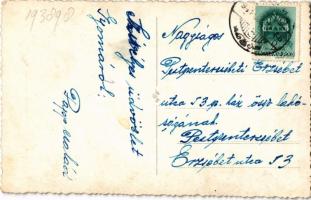 193898
Szívélyes üdvözlet
Gyomáról.
Papp család
Nagyságos
Pestszenterzsébeti Erzsébet
utca 53. ház össz lakó-
ságának.
Pestszenterzsébet
Erzsébet utca 53